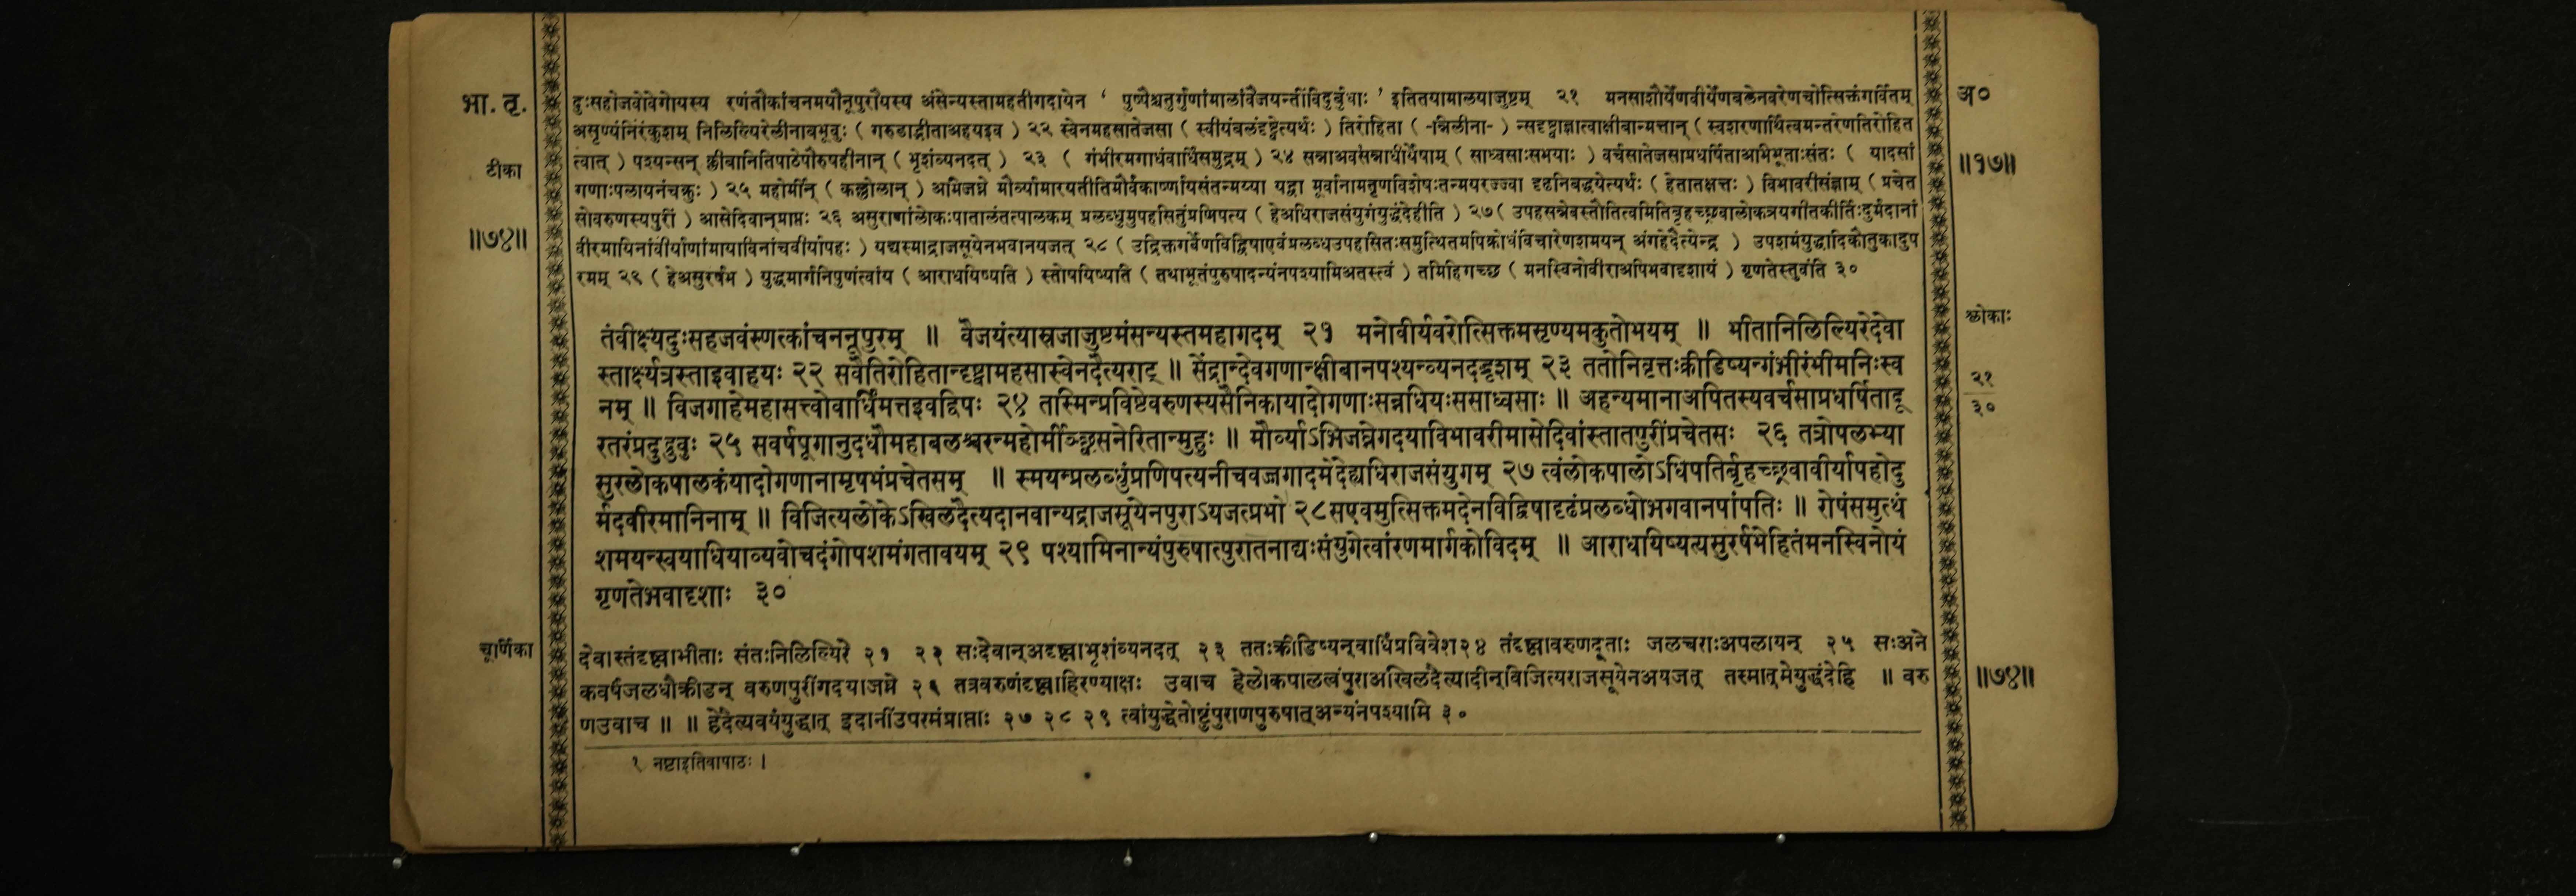 भा. तृ.
टीका
॥७४॥
दुःसहोजवोवेगोयस्य रणंतौकांचनमयौनूपुरौयस्य अंसेन्यस्तामहतीगदायेन ‘ पुष्पैश्चतुर्गुणांमालांवैजयन्तींविदुर्बुधाः ’ इतितयामालयाजुष्टम् २१ मनसाशौर्येणवीर्येणबलेनवरेणचोत्सिक्तंगर्वितम्
असृण्यंनिरंकुशम् निलिल्यिरेलीनाबभूवुः ( गरुडाद्भीताअहयइव ) २२ स्वेनमहसातेजसा ( स्वीयंबलंदृष्ट्वेत्यर्थः ) तिरोहिता ( -न्निलीना- ) न्सदृष्ट्वाज्ञात्वाक्षीबान्मत्तान् ( स्वशरणार्थित्वमन्तरेणतिरोहित
त्वात् ) पश्यन्सन् क्लीबानितिपाठेपौरुषहीनान् ( भृशंव्यनदत् ) २३ ( गंभीरमगाधंवार्धिंसमुद्रम् ) २४ सन्नाअवसन्नाधीर्येषाम् ( साध्वसाःसभयाः ) वर्चसातेजसाप्रधर्षिताअभिभूताःसंतः ( यादसां
गणाःपलायनंचक्रुः ) २५ महोर्मीन् ( कल्लोलान् ) अभिजघ्ने मौर्व्यामारयतीतिमौर्वंकार्ष्णायसंतन्मय्या यद्वा मूर्वानामतृणविशेषःतन्मयरज्ज्वा दृढनिबद्धयेत्यर्थः ( हेतातक्षत्तः ) विभावरीसंज्ञाम् ( प्रचेत
सोवरुणस्यपुरीं ) आसेदिवान्प्राप्तः २६ असुराणांलोकःपातालंतत्पालकम् प्रलब्धुमुपहसितुंप्रणिपत्य ( हेअधिराजसंयुगंयुद्धंदेहीति ) २७ ( उपहसन्नेवस्तौतित्वमितिबृहच्छ्रवालोकत्रयगीतकीर्तिःदुर्मदानां
वीरमायिनांवीर्याणांमायाविनांचवीर्यापहः ) यद्यस्माद्राजसूयेनभवानयजत् २८ ( उद्रिक्तगर्वेणविद्विषाएवंप्रलब्धउपहसितःसमुत्थितमपिक्रोधंविचारेणशमयन् अंगहेदैत्येन्द्र ) उपशमंयुद्धादिकौतुकादुप
रमम् २९ ( हेअसुरर्षभ ) युद्धमार्गनिपुणंत्वांय ( आराधयिष्यति ) स्तोषयिष्यति ( तथाभूतंपुरुषादन्यंनपश्यामिअतस्त्वं ) तमिहिगच्छ ( मनस्विनोवीराअपिभवादृशायं ) गृणतेस्तुवंति ३०
तंवीक्ष्यदुःसहजवंरणत्कांचननूपुरम् ॥ वैजयंत्यास्रजाजुष्टमंसन्यस्तमहागदम् २१ मनोवीर्यवरोत्सिक्तमसृण्यमकुतोभयम् ॥ भीतानिलिल्यिरेदेवा
स्तार्क्ष्यत्रस्ताइवाहयः २२ सवैतिरोहितान्दृष्ट्वामहसास्वेनदैत्यराट् ॥ सेंद्रान्देवगणान्क्षीबानपश्यन्व्यनदद्भृशम् २३ ततोनिवृत्तःक्रीडिष्यन्गंभीरंभीमनिःस्व
नम् ॥ विजगाहेमहासत्त्वोवार्धिंमत्तइवद्विपः २४ तस्मिन्प्रविष्टेवरुणस्यसैनिकायादोगणाःसन्नधियःससाध्वसाः ॥ अहन्यमानाअपितस्यवर्चसाप्रधर्षितादू
रतरंप्रदुद्रुवुः २५ सवर्षपूगानुदधौमहाबलश्चरन्महोर्मीञ्च्छ्वसनेरितान्मुहुः ॥ मौर्व्याऽभिजघ्नेगदयाविभावरीमासेदिवांस्तातपुरींप्रचेतसः २६ तत्रोपलभ्या
सुरलोकपालकंयादोगणानामृषभंप्रचेतसम् ॥ स्मयन्प्रलब्धुंप्रणिपत्यनीचवज्जगादमेदेह्यधिराजसंयुगम् २७ त्वंलोकपालोऽधिपतिर्बृहच्छ्रवावीर्यापहोदु
र्मदवीरमानिनाम् ॥ विजित्यलोकेऽखिलदैत्यदानवान्यद्राजसूयेनपुराऽयजत्प्रभो २८ सएवमुत्सिक्तमदेनविद्विषादृढंप्रलब्धोभगवानपांपतिः ॥ रोषंसमुत्थं
शमयन्स्वयाधियाव्यवोचदंगोपशमंगतावयम् २९ पश्यामिनान्यंपुरुषात्पुरातनाद्यःसंयुगेत्वांरणमार्गकोविदम् ॥ आराधयिष्यत्यसुरर्षभेहितंमनस्विनोयं
गृणतेभवादृशाः ३०
चूर्णिका
देवास्तंदृष्ट्वाभीताः संतःनिलिल्यिरे २१ २२ सःदेवान्अदृष्ट्वाभृशंव्यनदत् २३ ततःक्रीडिष्यन्वार्धिंप्रविवेश२४ तंदृष्ट्वावरुणदूताः जलचराःअपलायन् २५ सःअने
कवर्षंजलधौक्रीडन् वरुणपुरींगदयाजघ्ने २६ तत्रवरुणंदृष्ट्वाहिरण्याक्षः उवाच हेलोकपालत्वंपुराअखिलदैत्यादीन्विजित्यराजसूयेनअयजत् तस्मात्मेयुद्धंदेहि ॥ वरु
णउवाच ॥ ॥ हेदैत्यवयंयुद्धात् इदानींउपरमंप्राप्ताः २७ २८ २९ त्वांयुद्धेतोष्टुंपुराणपुरुषात्अन्यंनपश्यामि ३०
१ नष्टाइतिवापाठः ।
अ०
॥१७॥
श्लोकाः
२१
३०
॥७४॥